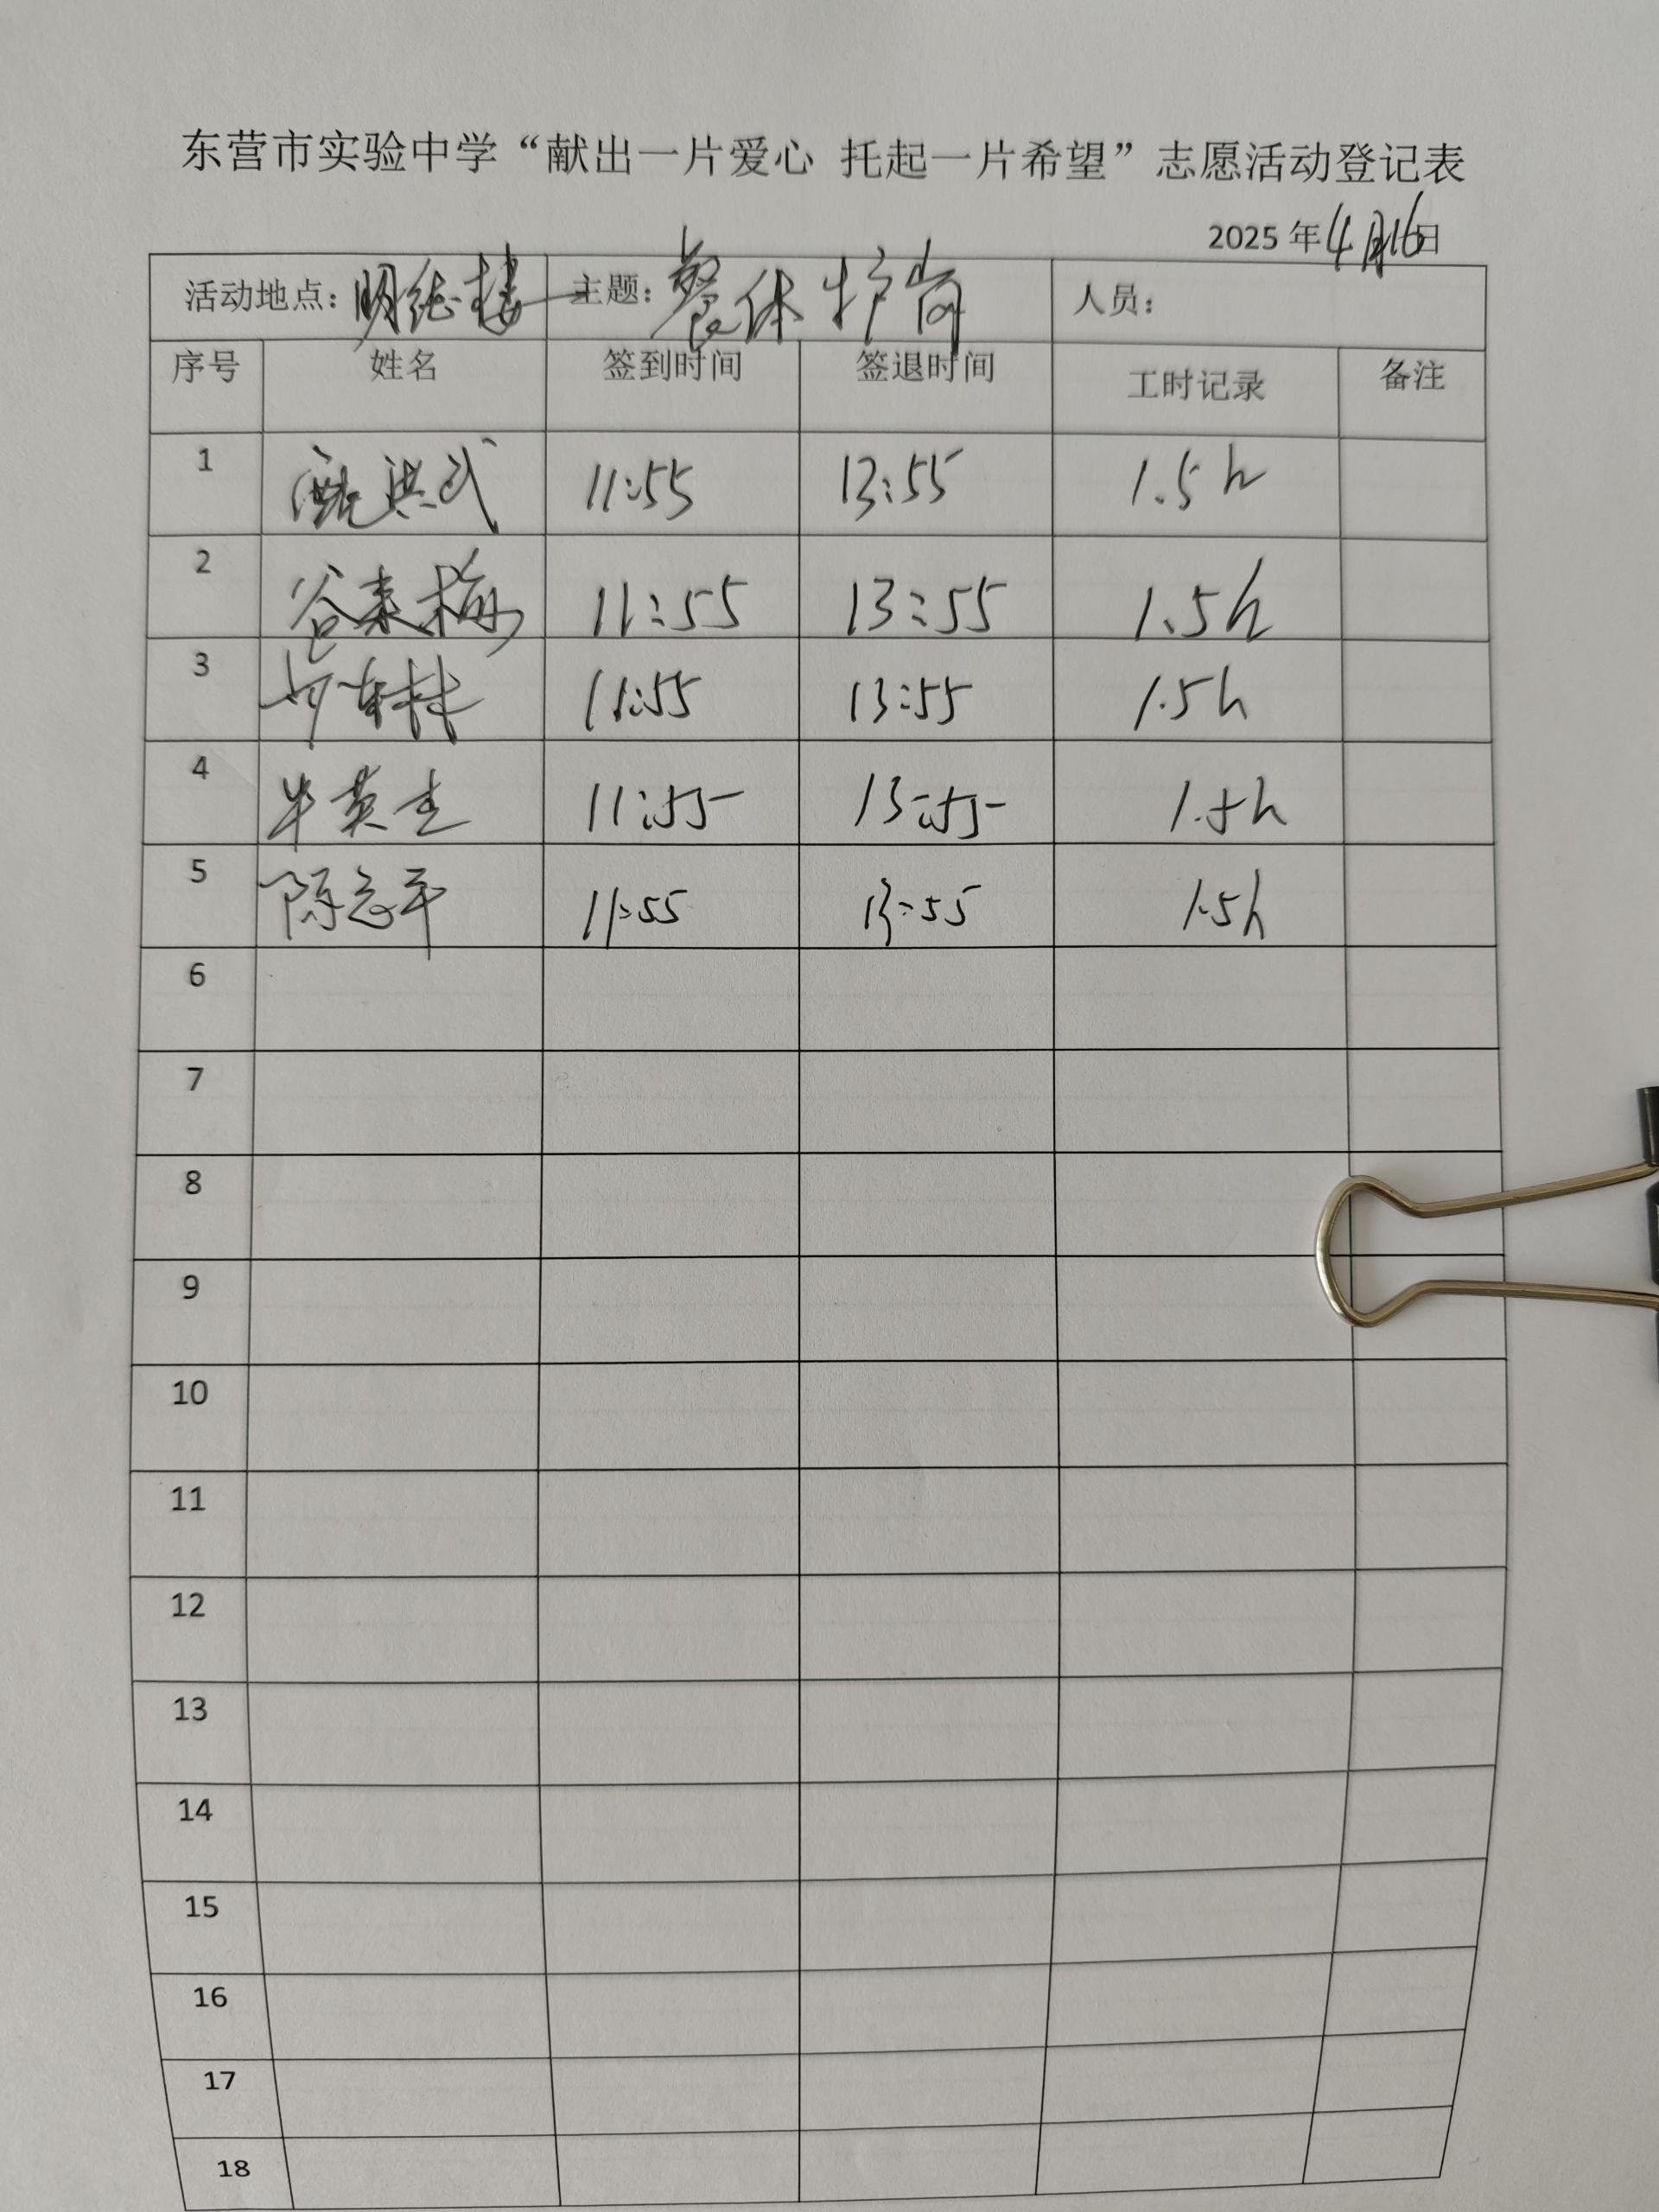 东营市实验中学“献出一片爱心 托起一片希望”志愿活动登记表
2025年4月16日
活动地点：明德楼 主题：餐休护岗 人员：
序号 姓名 签到时间 签退时间 工时记录 备注
1 洪武 11:55 13:55 1.5h
2 谷素梅 11:55 13:55 1.5h
3 11:55 13:55 1.5h
4 11:55 13:55 1.5h
5 陈志平 11:55 13:55 1.5h
6
7
8
9
10
11
12
13
14
15
16
17
18